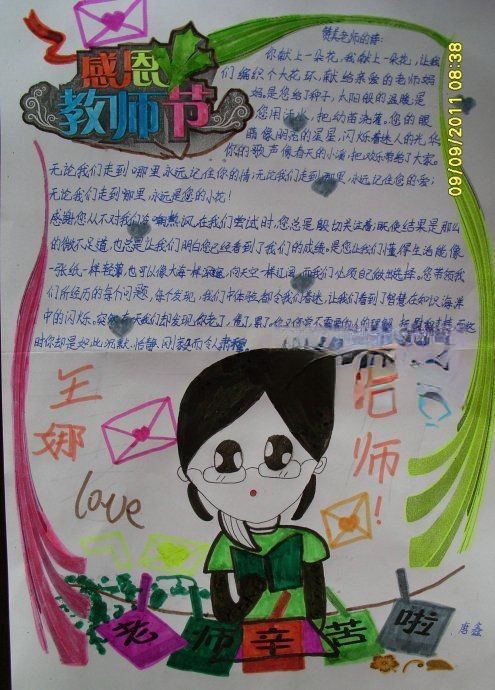 感恩
教师节
赞美老师的诗:
你献上一朵花,我献上一朵花,让我
们编织个大花环,献给亲爱的老师妈
妈。是您给了种子,太阳般的温暖是
您用活水,把幼苗浇灌。您的眼
睛像明亮的星星,闪烁着迷人的光华
你的歌声像春天的小溪,把欢乐带给了大家。
无论我们走到哪里,永远记住你的情;无论我们走到那里,永远记住您的爱;
无论我们走到哪里,永远是您的小花!
感谢您从不对我们在嘲热讽,在我们尝试时,您总是殷切关注着;既使结果是那么
的微不足道,也总是让我们明白您已经看到了我们的成绩。是您让我们懂得生活能像
一张纸一样轻薄,也可以像大海一样深邃,向天空一样辽阔,而我们必须自己做出选择。您带领我
们所经历的每个问题,每个发现,我们中体验都令我们着迷,让我们看到了智慧在知识海洋
中的闪烁。我们却发现,你老了,倦了,累了
时你却是如此沉默、恬静、而令人肃穆。
09/09/2011 08:38
王娜
老师!
love
老师辛苦啦
唐鑫